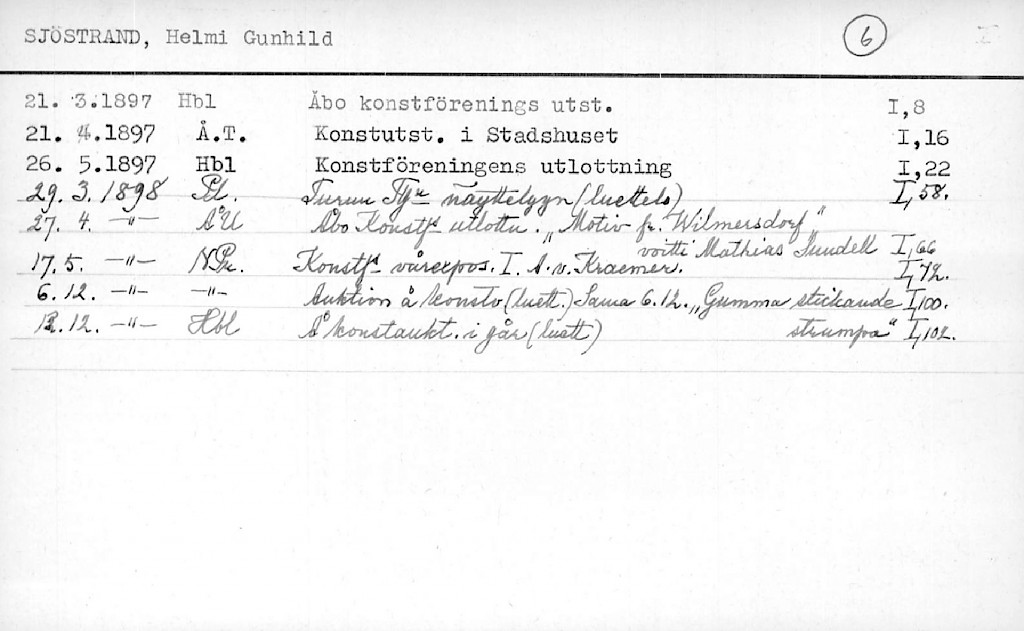 SJÖSTRAND, Helmi Gunhild 6 I
21. 3.1897 Hbl Åbo konstförenings utst. I,8
21. 4.1897 Å.T. Konstutst. i Stadshuset I,16
26. 5.1897 Hbl Konstföreningens utlottning I,22
29. 3. 1898 Turun Ty:n näyttelyyn (luettelo) I,58.
27. 4. -"- ÅU Åbo Konstf:s utlottn. „Motiv fr. Wilmersdorf"
voitti Mathias Sundell I,66
17. 5. -"- N.Pr. Konstf:s vårexpos. I. A. v. Kraemer. I,72.
6. 12. -"- -"- Auktion å konstv (luett.) Sama 6.12. „Gumma stickande I,100.
12. 12. -"- Hbl Å konstaukt. i går (luett) strumpa" I,102.